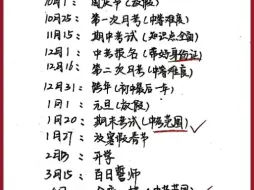 10月1: 国庆节（放假）
10月25: 第一次月考（中等难度）
11月15: 期中考试（知识点全面）
12月1: 中考报名（带好身份证）
12月16: 第二次月考（中等难度）
12月31: 跨年（初中最后一年）
1月1: 元旦（放假）
1月20: 期末考试（中考范围）
1月27: 放寒假春节
2月 开学
3月15: 百日誓师